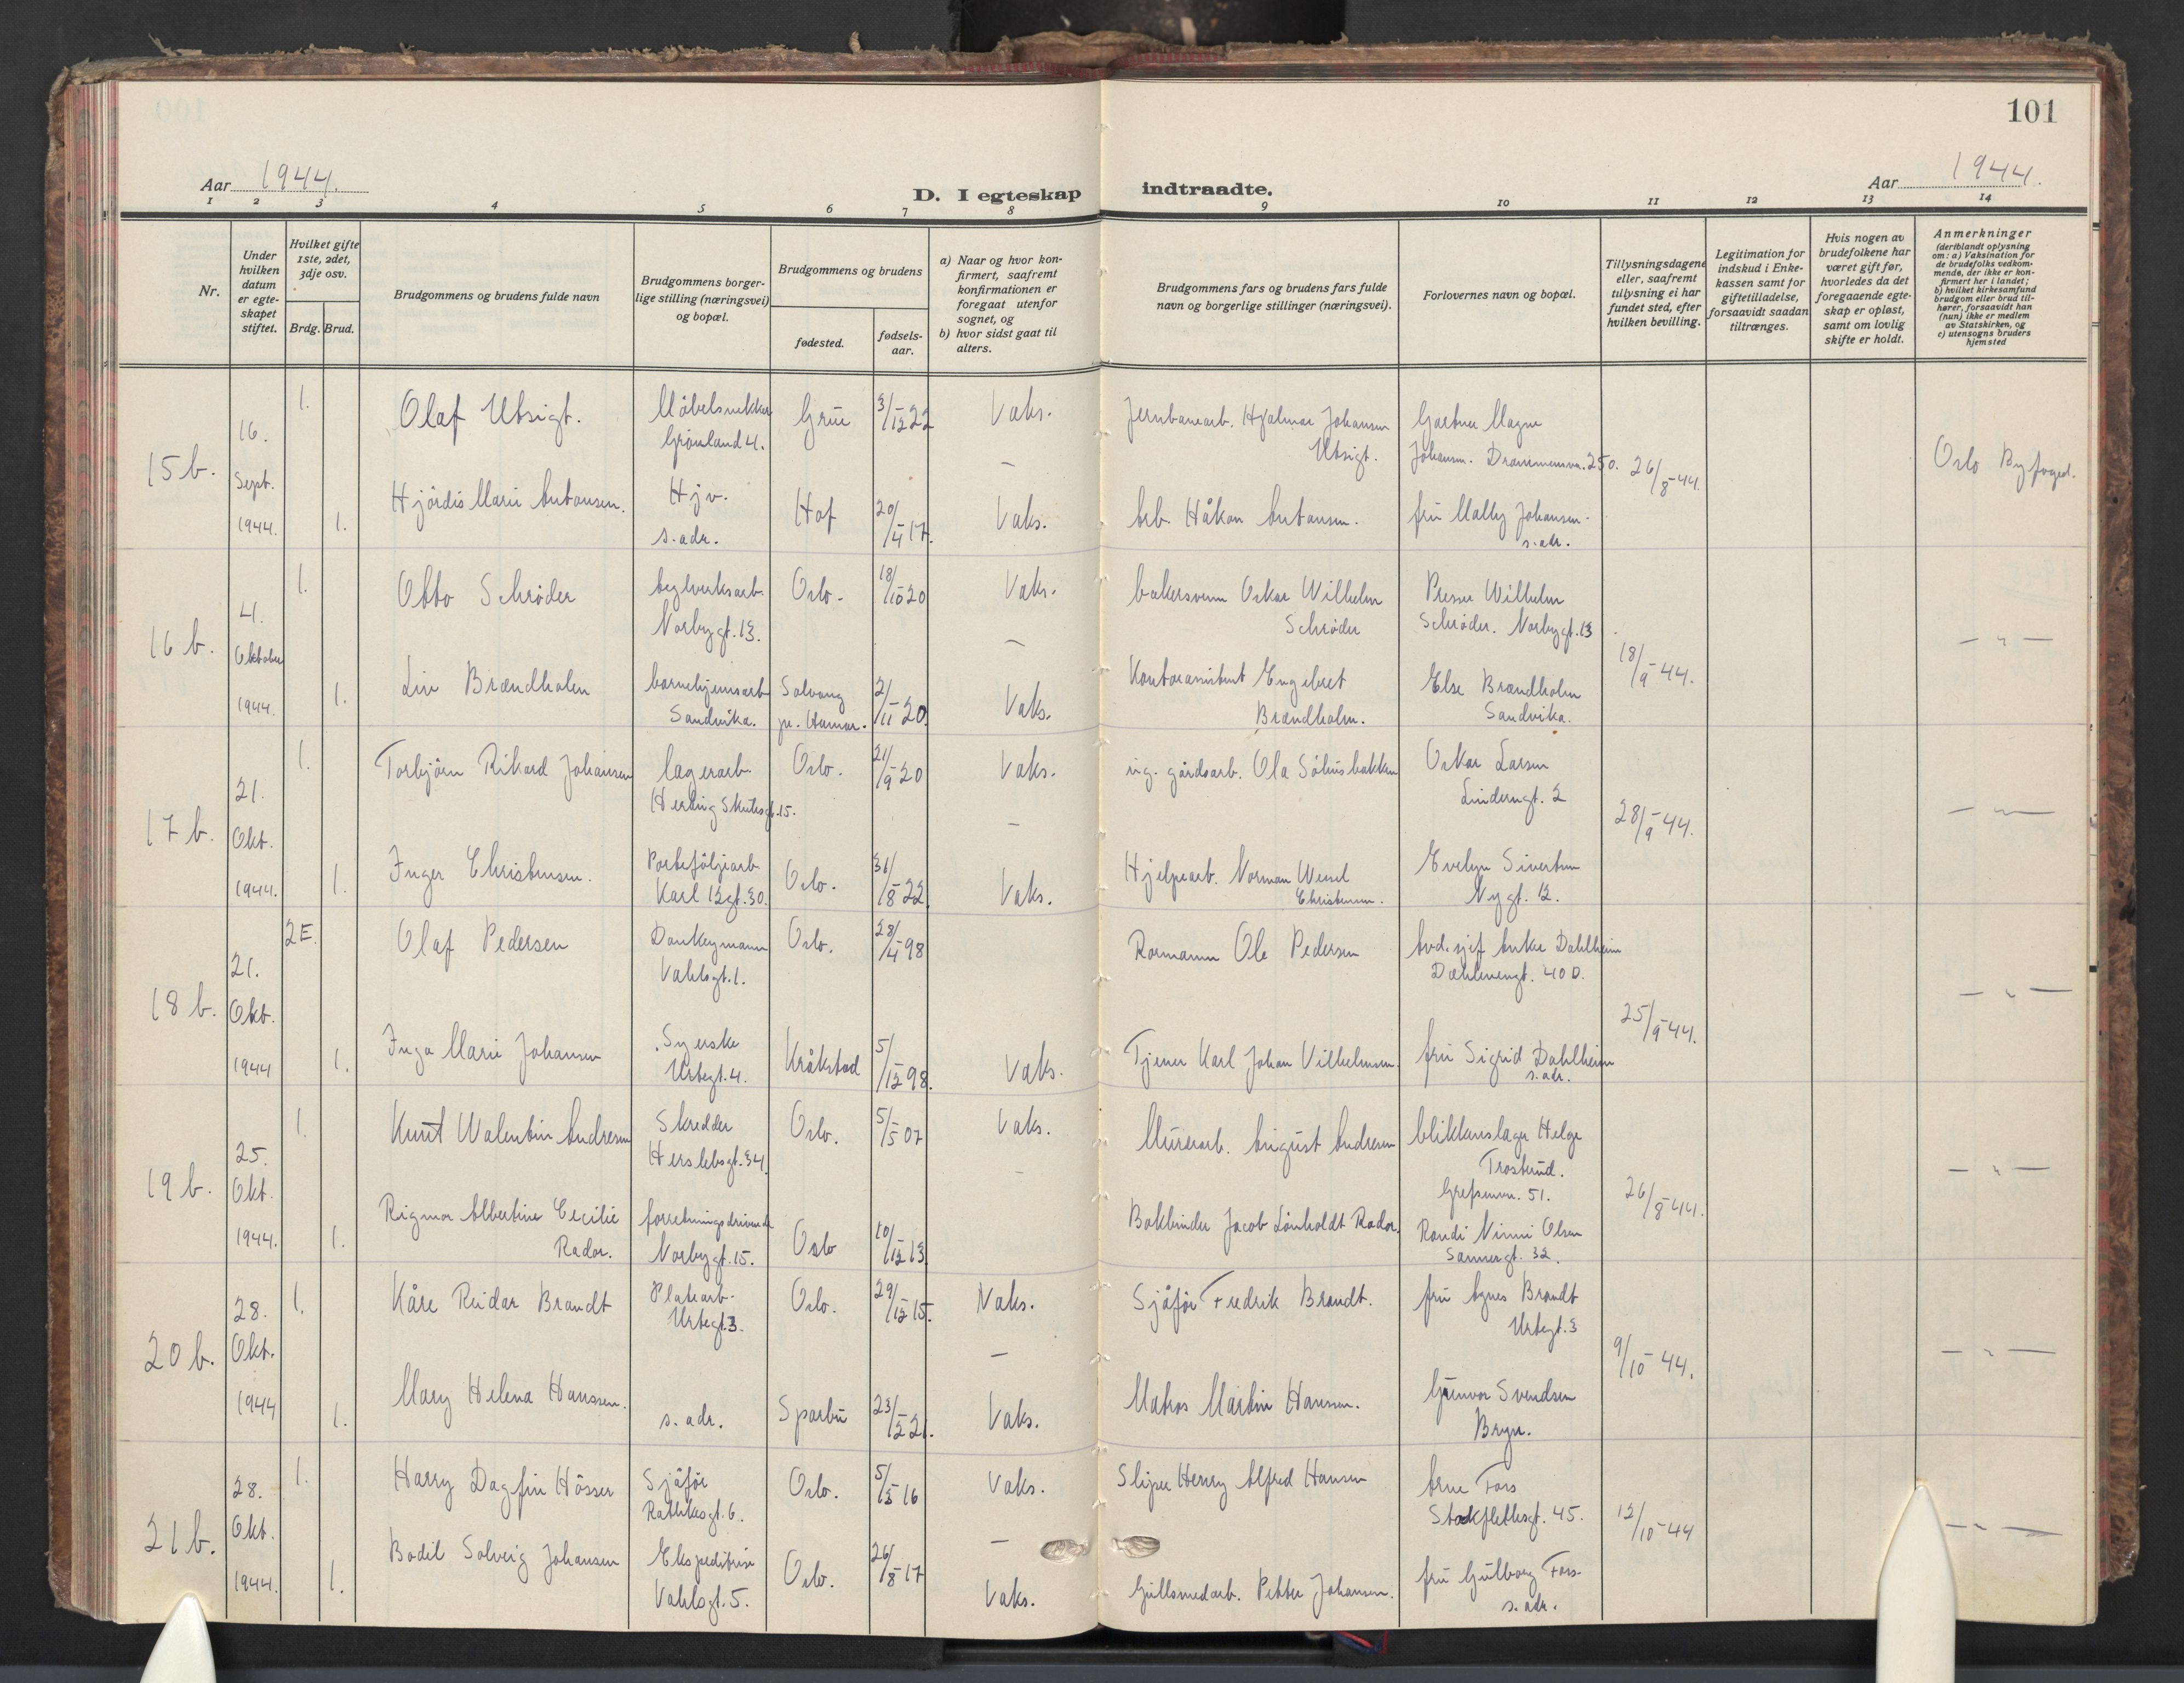 101
Aar 1944.
D. I egteskap indtraadte.
Aar 1944.
1 2 3 4 5 6 7 8 9 10 11 12 13 14
Nr.
Under hvilken datum er egteskapet stiftet.
Hvilket gifte 1ste, 2det, 3dje osv.
Brdg. Brud.
Brudgommens og brudens fulde navn
Brudgommens borgerlige stilling (næringsvei) og bopæl.
Brudgommens og brudens
fødested.
fødselsaar.
a) Naar og hvor konfirmert, saafremt konfirmationen er foregaat utenfor sognet, og
b) hvor sidst gaat til alters.
Brudgommens fars og brudens fars fulde navn og borgerlige stillinger (næringsvei).
Forlovernes navn og bopæl.
Tillysningsdagene eller, saafremt tillysning ei har fundet sted, efter hvilken bevilling.
Legitimation for indskud i Enkekassen samt for giftetilladelse, forsaavidt saadan tiltrænges.
Hvis nogen av brudefolkene har været gift før, hvorledes da det foregaaende egteskap er opløst, samt om lovlig skifte er holdt.
Anmerkninger
(deriblandt oplysning om: a) Vaksination for de brudefolks vedkommende, der ikke er konfirmert her i landet; b) hvilket kirkesamfund brudgom eller brud tilhører, forsaavidt han (hun) ikke er medlem av Statskirken, og c) utensogns bruders hjemsted
15 b. 16. Sept. 1944. 1. Olaf Utsigt. Møbelsnekker Grønland 4. Grue 3/12-22 Vaks. Jernbanearb. Hjalmar Johansen Utsigt. Gartner Magne Johansen. Drammensvn. 250. 26/8-44. Oslo Byfoged.
1. Hjørdis Marie Antonsen. Hjv. s. adr. Hof 20/4-17. Vaks. Arb. Håkon Antonsen. fru Mally Johansen. s. adr.
16 b. 4. Oktober 1944. 1. Otto Schrøder teglverksarb. Norbygt. 13. Oslo. 18/10-20 Vaks. bakersvenn Oskar Wilhelm Schrøder Presser Wilhelm Schrøder. Norbygt. 13. 18/9-44. — " —
1. Liv Brændholen barnehjemsarb Sandvika. Solvang pr. Hamar. 2/11-20. Vaks. Kontorassistent Engebret Brændholm. Else Brændholm Sandvika.
17 b. 21. Okt. 1944. 1. Torbjørn Rikard Johansen lagerarb. Hertug Skulesgt. 15. Oslo. 21/9-20 Vaks. ug. gårdsarb. Ola Sølusbakken Oskar Larsen Linderngt. 2 28/9-44. — " —
1. Inger Christensen. Porteføljearb Karl 12gt. 30. Oslo. 31/8-22. Vaks. Hjelpearb. Norman Wessel Christensen. Evelyn Sivertsen Nygt. 12.
18 b. 21. Okt. 1944 2E. Olaf Pedersen Donkeymann Vahlsgt. 1. Oslo. 28/4-98 Rormann Ole Pedersen Avd. sjef Anker Dahlheim Dælenengt. 40 D. 25/9-44. — " —
1. Inga Marie Johansen Syerske Urtegt. 4. Kråkstad 5/12-98. Vaks. Tjener Karl Johan Vilhelmsen. fru Sigrid Dahlheim s. adr.
19 b. 25. Okt. 1944. 1. Kurt Walentin Andresen Skredder Herslebsgt. 34. Oslo. 5/5-07 Vaks. Murerarb. August Andresen blikkenslager Helge Trosterud. Grefsenvn. 51. 26/8-44. — " —
1. Rigmor Albertine Cecilie Rador. forretningsdrivende Norbygt. 15. Oslo 10/12-13. Bokbinder Jacob Lönholdt Rador. Randi Ninni Olsen Sannergt. 32.
20 b. 28. Okt. 1944 1. Kåre Reidar Brandt Platearb. Urtegt. 3. Oslo. 29/12-15. Vaks. Sjåfør Fredrik Brandt. fru Agnes Brandt Urtegt. 3 9/10-44. — " —
1. Mary Helena Hanssen. s. adr. Sparbu 23/12-21. Vaks. Matros Martin Hanssen. Gunvor Svendsen Bryn.
21 b. 28. Okt. 1944. 1. Harry Dagfin Hösser Sjåfør Rathkesgt. 6. Oslo. 5/12-16 Vaks. Sliper Henry Alfred Hansen Arne Fors Stockflethsgt. 45. 12/10-44 — " —
1. Bodil Solveig Johansen Ekspeditrise Vahlsgt. 5. Oslo. 26/8-17 Vaks. Gullsmedarb. Petter Johansen. fru Gulborg Fors. s. adr.